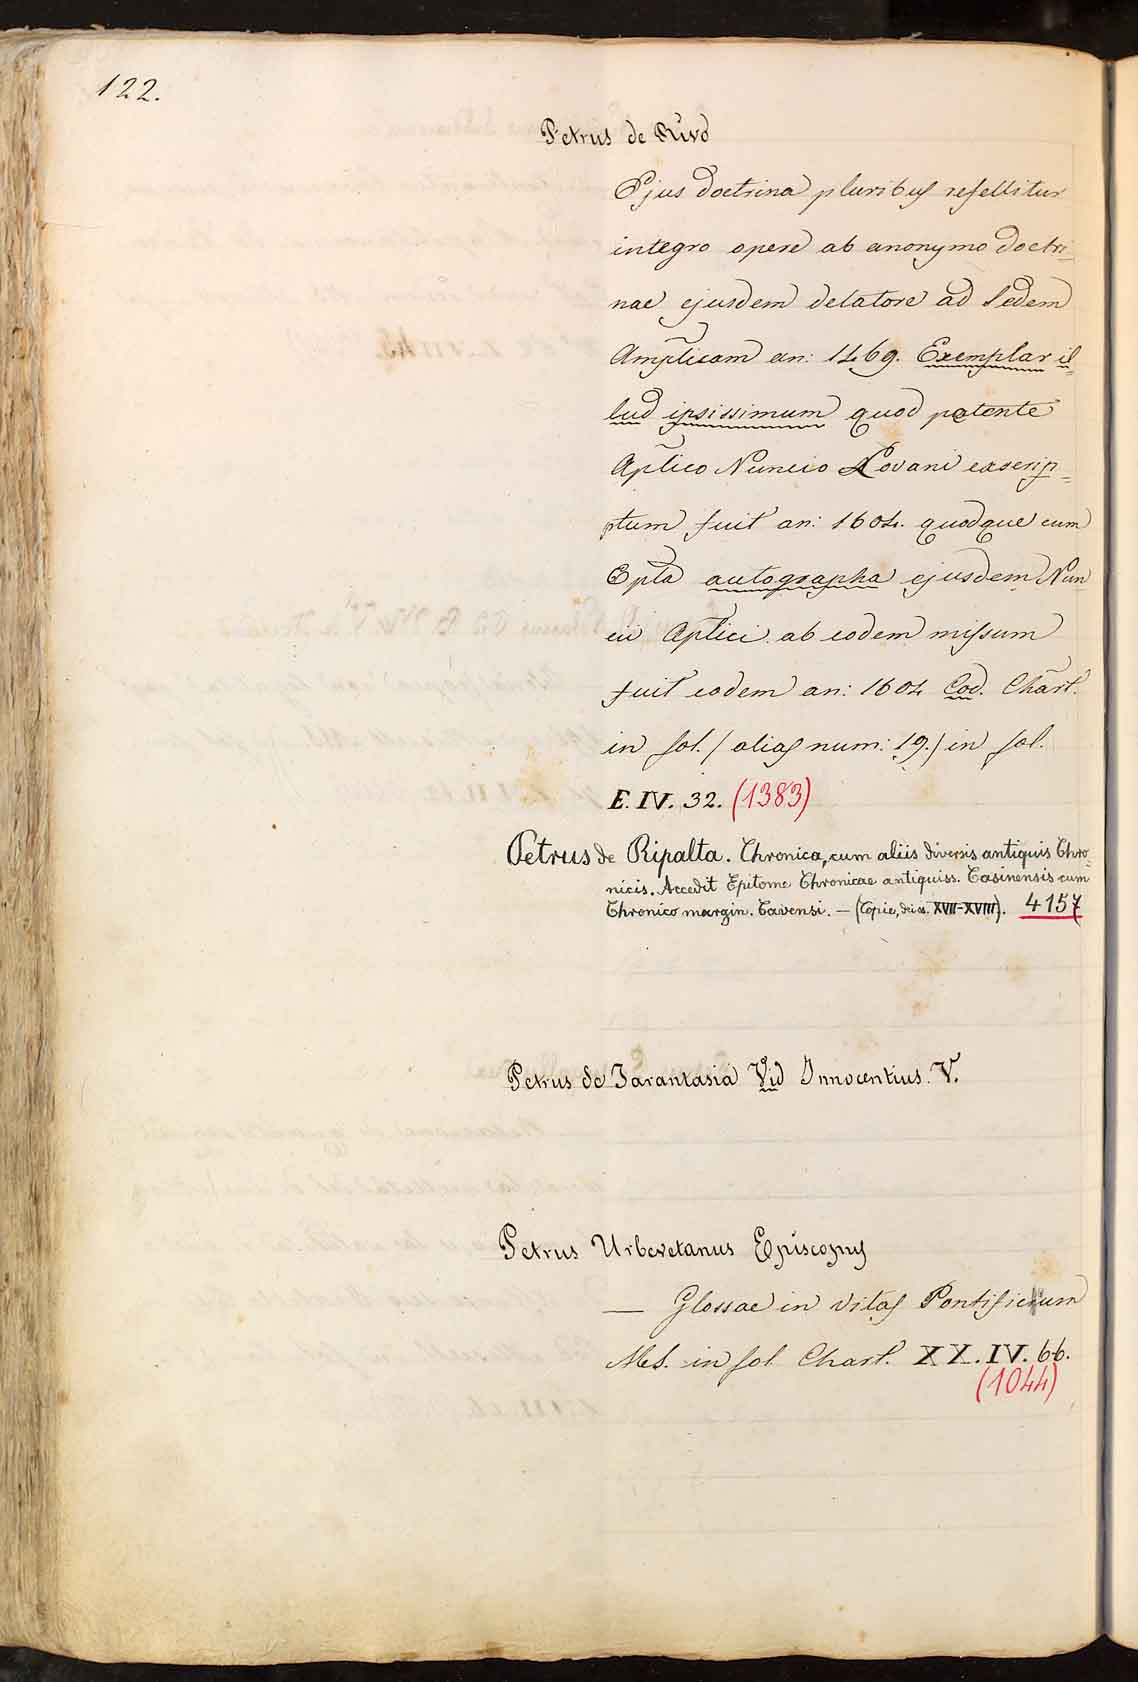 122.
Petrus de Rivo
Ejus doctrina pluribus refellitur
integro opere ab anonymo doctri-
nae ejusdem delatore ad Sedem
Amplicam an: 1469. Exemplar il-
lud ipsissimum quod petente
Aplico Nuncio Lovani exscrip-
ptum fuit an: 1604. quodque cum
Epla autographa ejusdem Nun
cii Aplici ab eodem missum
fuit eodem an: 1604 Cod. Chart.
in fol. / alias num: 19. / in fol.
E. IV. 32. (1383)
Petrus de Ripalta. Chronica, cum aliis diversis antiquis Chro-
nicis. Accedit Epitome Chronicae antiquiss. Casinensis cum
Chronico margin. Cavensi. — (Copie, dei ss. XVII-XVIII). 4157
Petrus de Tarantasia Vid Innocentius. V.
Petrus Urbevetanus Episcopus
— Glossae in vitas Pontificum
MS. in fol Chart. XX. IV. 66.
(1044)